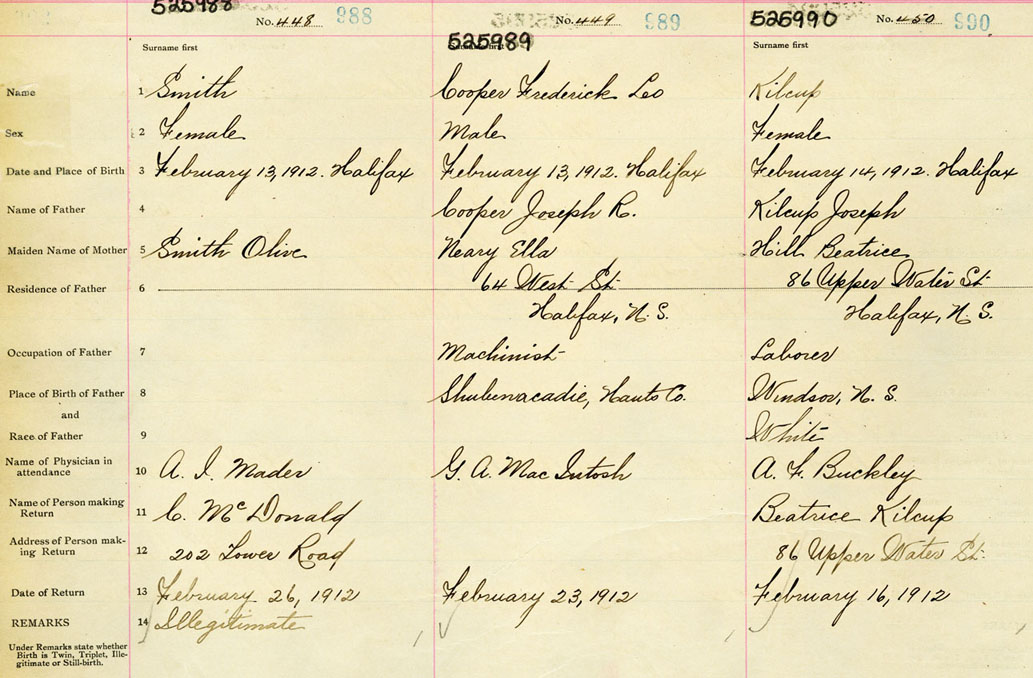 525988 No. 448 988 No. 449 989 525990 No. 450 990
Surname first 525989 Surname first
Name 1 Smith Cooper Frederick Leo Kilcup
Sex 2 Female Male Female
Date and Place of Birth 3 February 13, 1912. Halifax February 13, 1912. Halifax February 14, 1912. Halifax
Name of Father 4 Cooper Joseph R. Kilcup Joseph
Maiden Name of Mother 5 Smith Olive Neary Ella Hill Beatrice
Residence of Father 6 64 West St. 86 Upper Water St
Halifax, N.S. Halifax, N.S.
Occupation of Father 7 Machinist Laborer
Place of Birth of Father 8 Shubenacadie, Hants Co. Windsor, N.S.
and
Race of Father 9 White
Name of Physician in
attendance 10 A. I. Mader G. A. MacIntosh A. F. Buckley
Name of Person making
Return 11 C. McDonald Beatrice Kilcup
Address of Person mak-
ing Return 12 202 Lower Road 86 Upper Water St.
Date of Return 13 February 26, 1912 February 23, 1912 February 16, 1912
REMARKS 14 Illegitimate
Under Remarks state whether
Birth is Twin, Triplet, Ille-
gitimate or Still-birth.